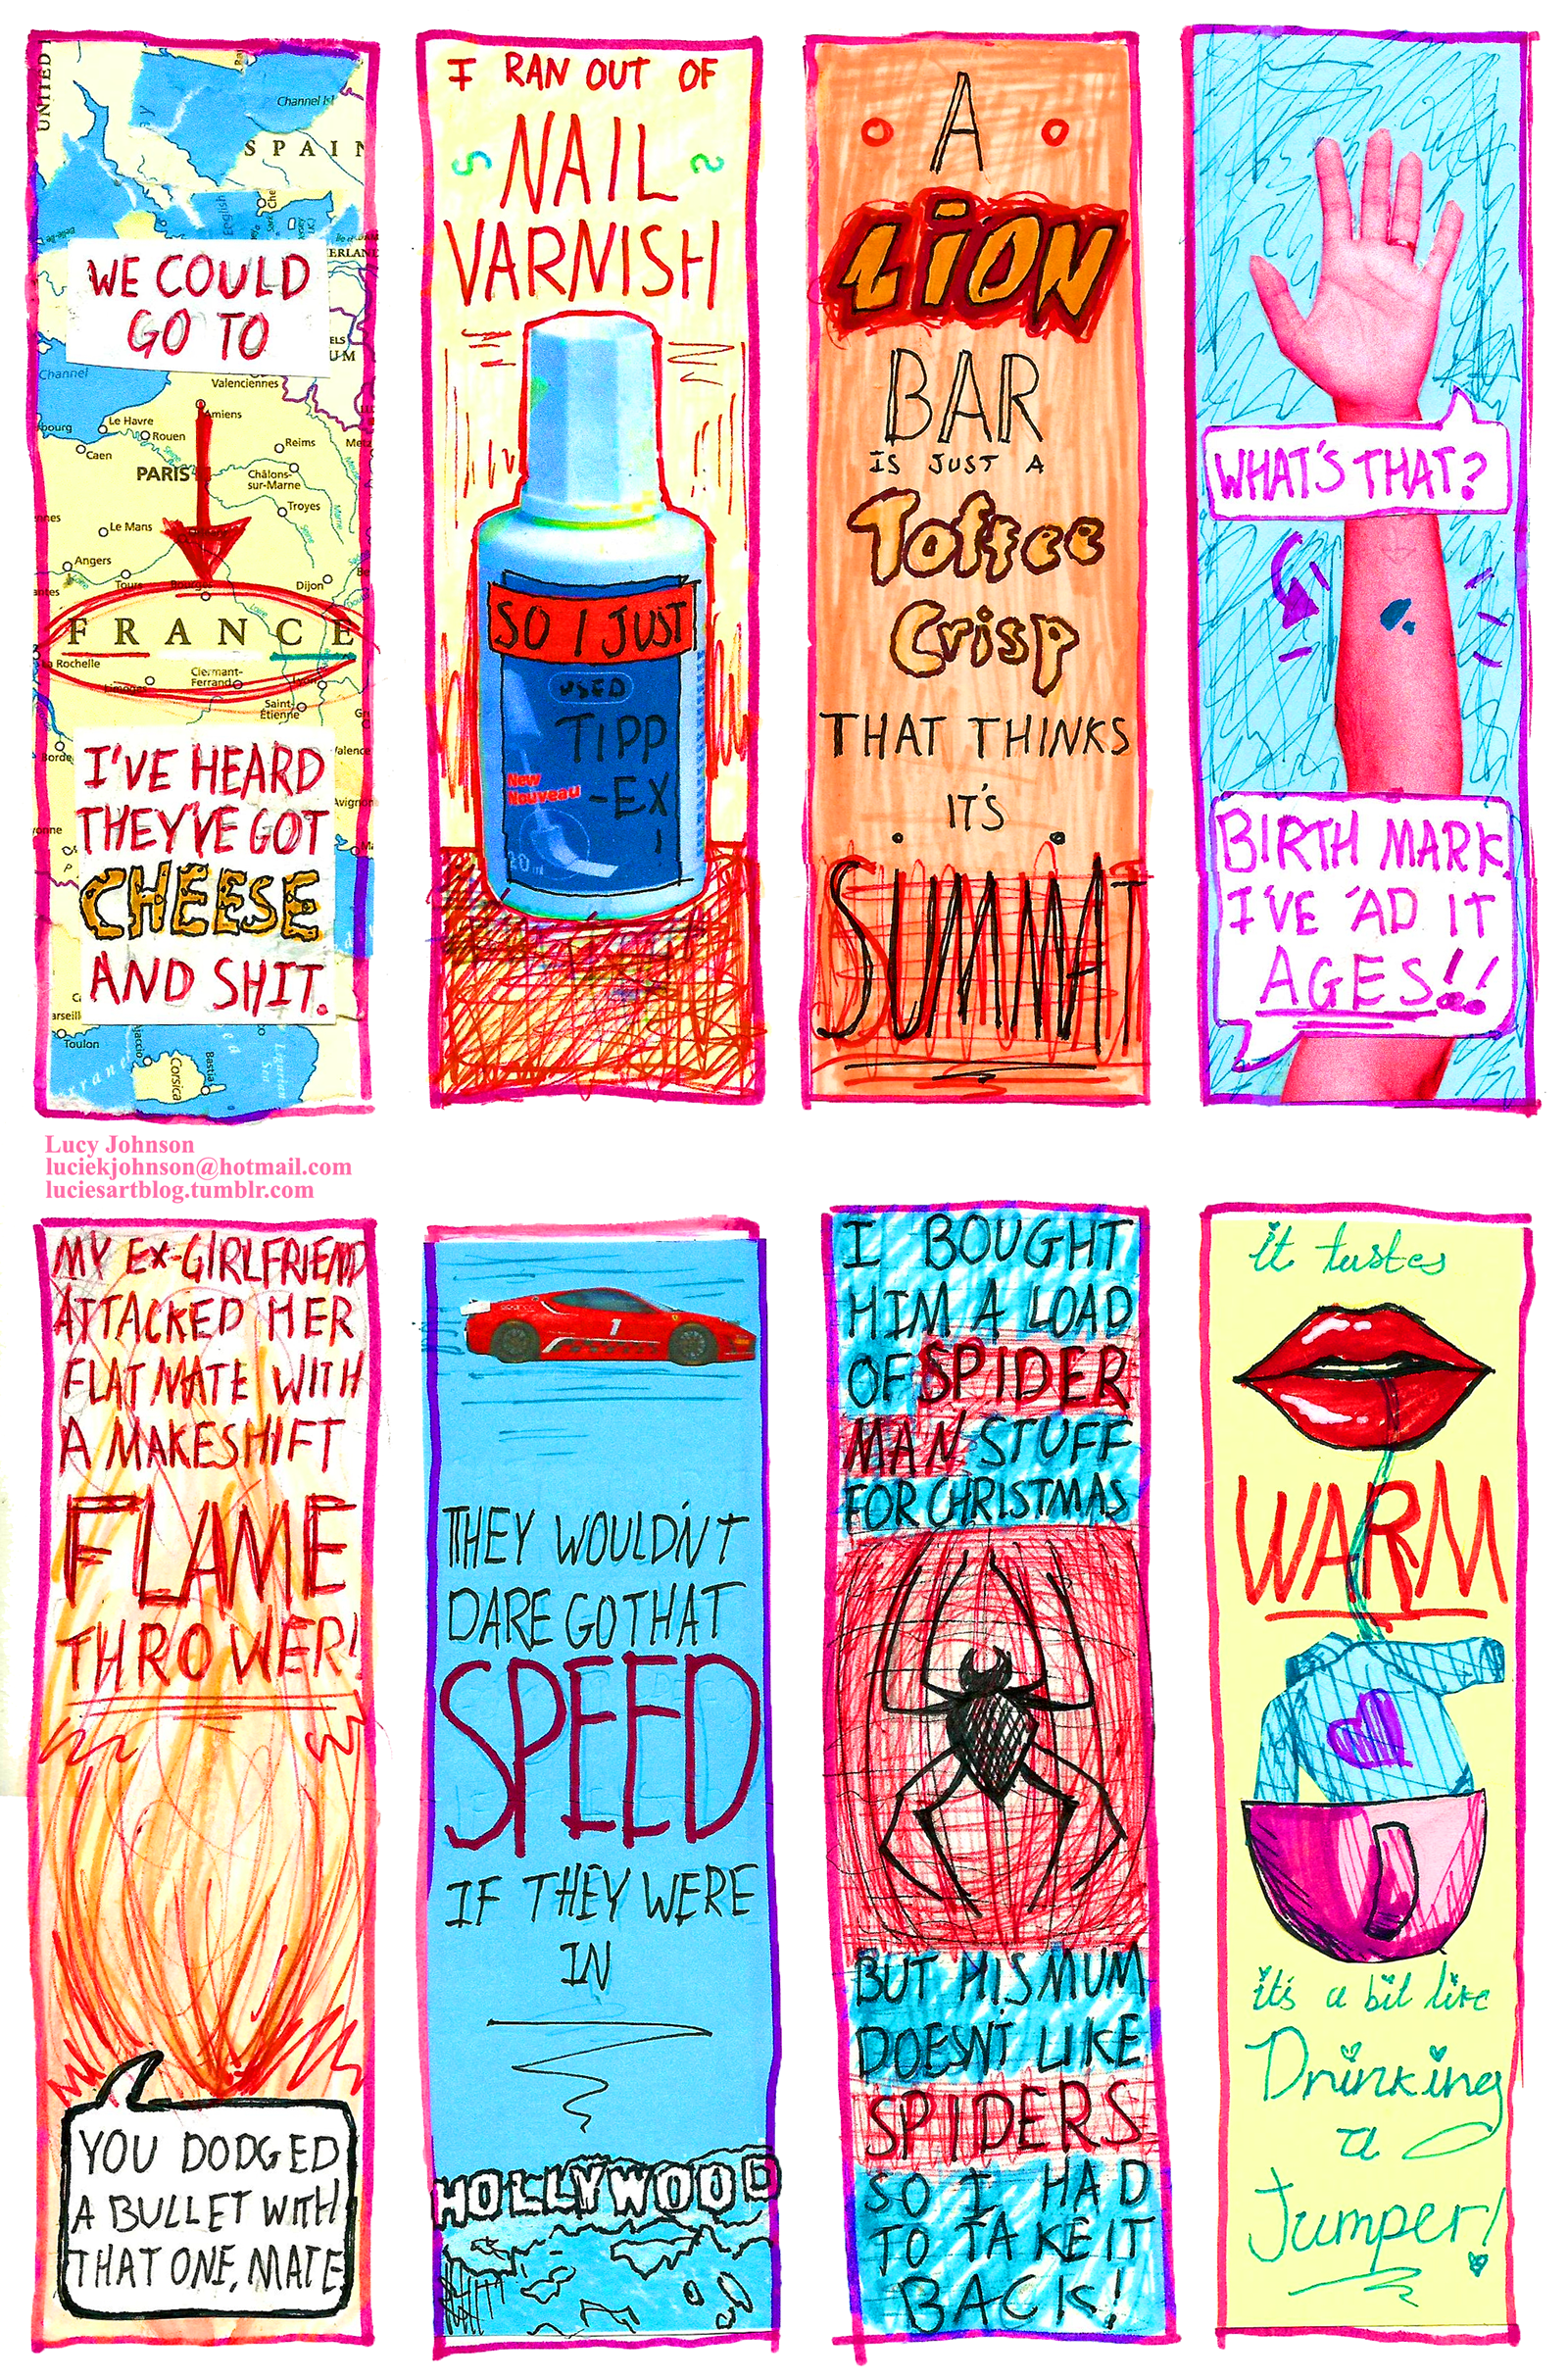 UNITED
Channel Isl
SPAIN
English
ERLAND
WE COULD
GO TO
ELS
UM
Channel
Valenciennes
Amiens
bourg
Le Havre
Rouen
Caen
Reims
Metz
PARIS
Châlons-
sur-Marne
Troyes
nnes
Le Mans
Angers
Tours
Bourges
Dijon
antes
FRANCE
La Rochelle
Limoges
Clermant-
Ferrand
Lyon
Saint-
Étienne
Borde
Valence
I'VE HEARD
THEY'VE GOT
CHEESE
AND SHIT.
Avignon
yonne
arseill
Toulon
Ajaccio
Corsica
Bastia
Ligurian
Sea
I RAN OUT OF
NAIL
VARNISH
SO I JUST
USED
TIPP
-EX
!
New
Nouveau
20 ml
A
LION
BAR
IS JUST A
Toffee
Crisp
THAT THINKS
IT'S
SUMMAT
WHAT'S THAT?
BIRTH MARK,
I'VE 'AD IT
AGES!!
Lucy Johnson
luciekjohnson@hotmail.com
luciesartblog.tumblr.com
MY EX-GIRLFRIEND
ATTACKED HER
FLAT MATE WITH
A MAKESHIFT
FLAME
THROWER!
YOU DODGED
A BULLET WITH
THAT ONE, MATE
1
THEY WOULDN'T
DARE GO THAT
SPEED
IF THEY WERE
IN
HOLLYWOOD
I BOUGHT
HIM A LOAD
OF SPIDER
MAN STUFF
FOR CHRISTMAS
BUT HIS MUM
DOESN'T LIKE
SPIDERS
SO I HAD
TO TAKE IT
BACK!
it tastes
WARM
it's a bit like
Drinking
a
Jumper!